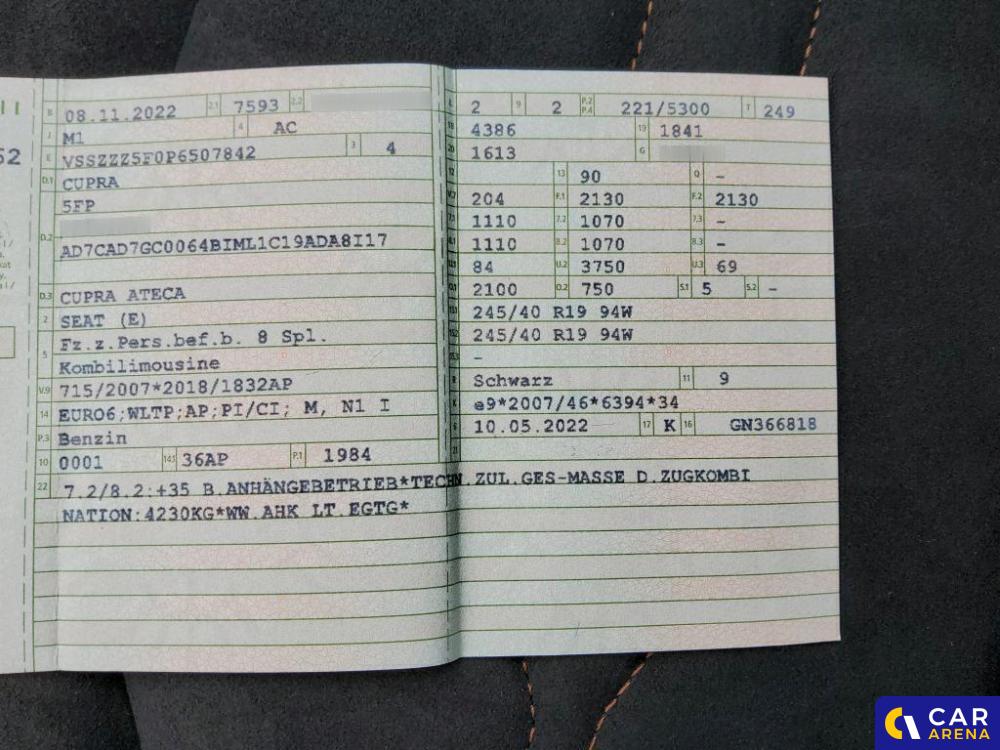 B 08.11.2022 2.1 7593 2.2
J M1 4 AC
E VSSZZZ5F0P6507842 3 4
D.1 CUPRA
5FP
D.2
AD7CAD7GC0064BIML1C19ADA8I17
D.3 CUPRA ATECA
2 SEAT (E)
5 Fz.z.Pers.bef.b. 8 Spl.
Kombilimousine
V.9 715/2007*2018/1832AP
14 EURO6;WLTP;AP;PI/CI; M, N1 I
P.3 Benzin
10 0001 14.1 36AP P.1 1984
L 2 9 2 P.2 P.4 221/5300 T 249
18 4386 19 1841
20 1613 G
12 13 90 Q -
V.7 204 F.1 2130 F.2 2130
7.1 1110 7.2 1070 7.3 -
8.1 1110 8.2 1070 8.3 -
U.1 84 U.2 3750 U.3 69
O.1 2100 O.2 750 S.1 5 S.2 -
15.1 245/40 R19 94W
15.2 245/40 R19 94W
15.3 -
R Schwarz 11 9
K e9*2007/46*6394*34
6 10.05.2022 17 K 16 GN366818
21
22 7.2/8.2:+35 B.ANHÄNGEBETRIEB*TECHN.ZUL.GES-MASSE D.ZUGKOMBI
NATION:4230KG*WW.AHK LT.EGTG*
52
CAR
ARENA